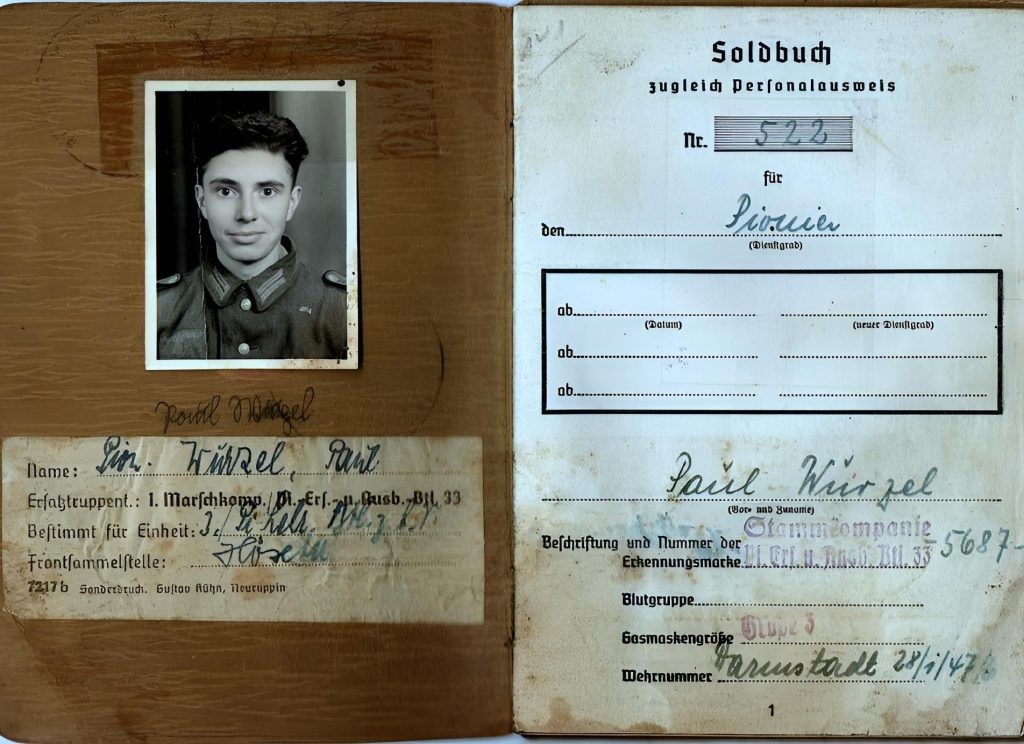 Paul Wurzel
Name: Pion. Wurzel, Paul
Ersatztruppent.: 1. Marschkomp./Pi.-Ers.- u. Ausb.-Btl. 33
Bestimmt für Einheit: 3./Pi.
Frontsammelstelle:
7217b Sonderdruck. Gustav Kühn, Neuruppin
Soldbuch
zugleich Personalausweis
Nr. 522
für
den Pionier
(Dienstgrad)
ab
(Datum) (neuer Dienstgrad)
ab
ab
Paul Wurzel
(Vor- und Zuname)
Beschriftung und Nummer der Erkennungsmarke
Stammkompanie
Pi. Ers. u. Ausb. Btl. 33 5687
Blutgruppe
Gasmaskengröße Größe 3
Wehrnummer Darmstadt 28/1/47/
1